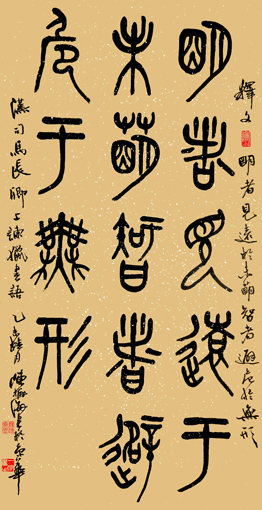 釋文 明者見遠於未萌智者避危於無形
明者見遠于
未萌智者避
危于無形
漢司馬長卿上諫獵書語 乙 月 陳 海書於京華